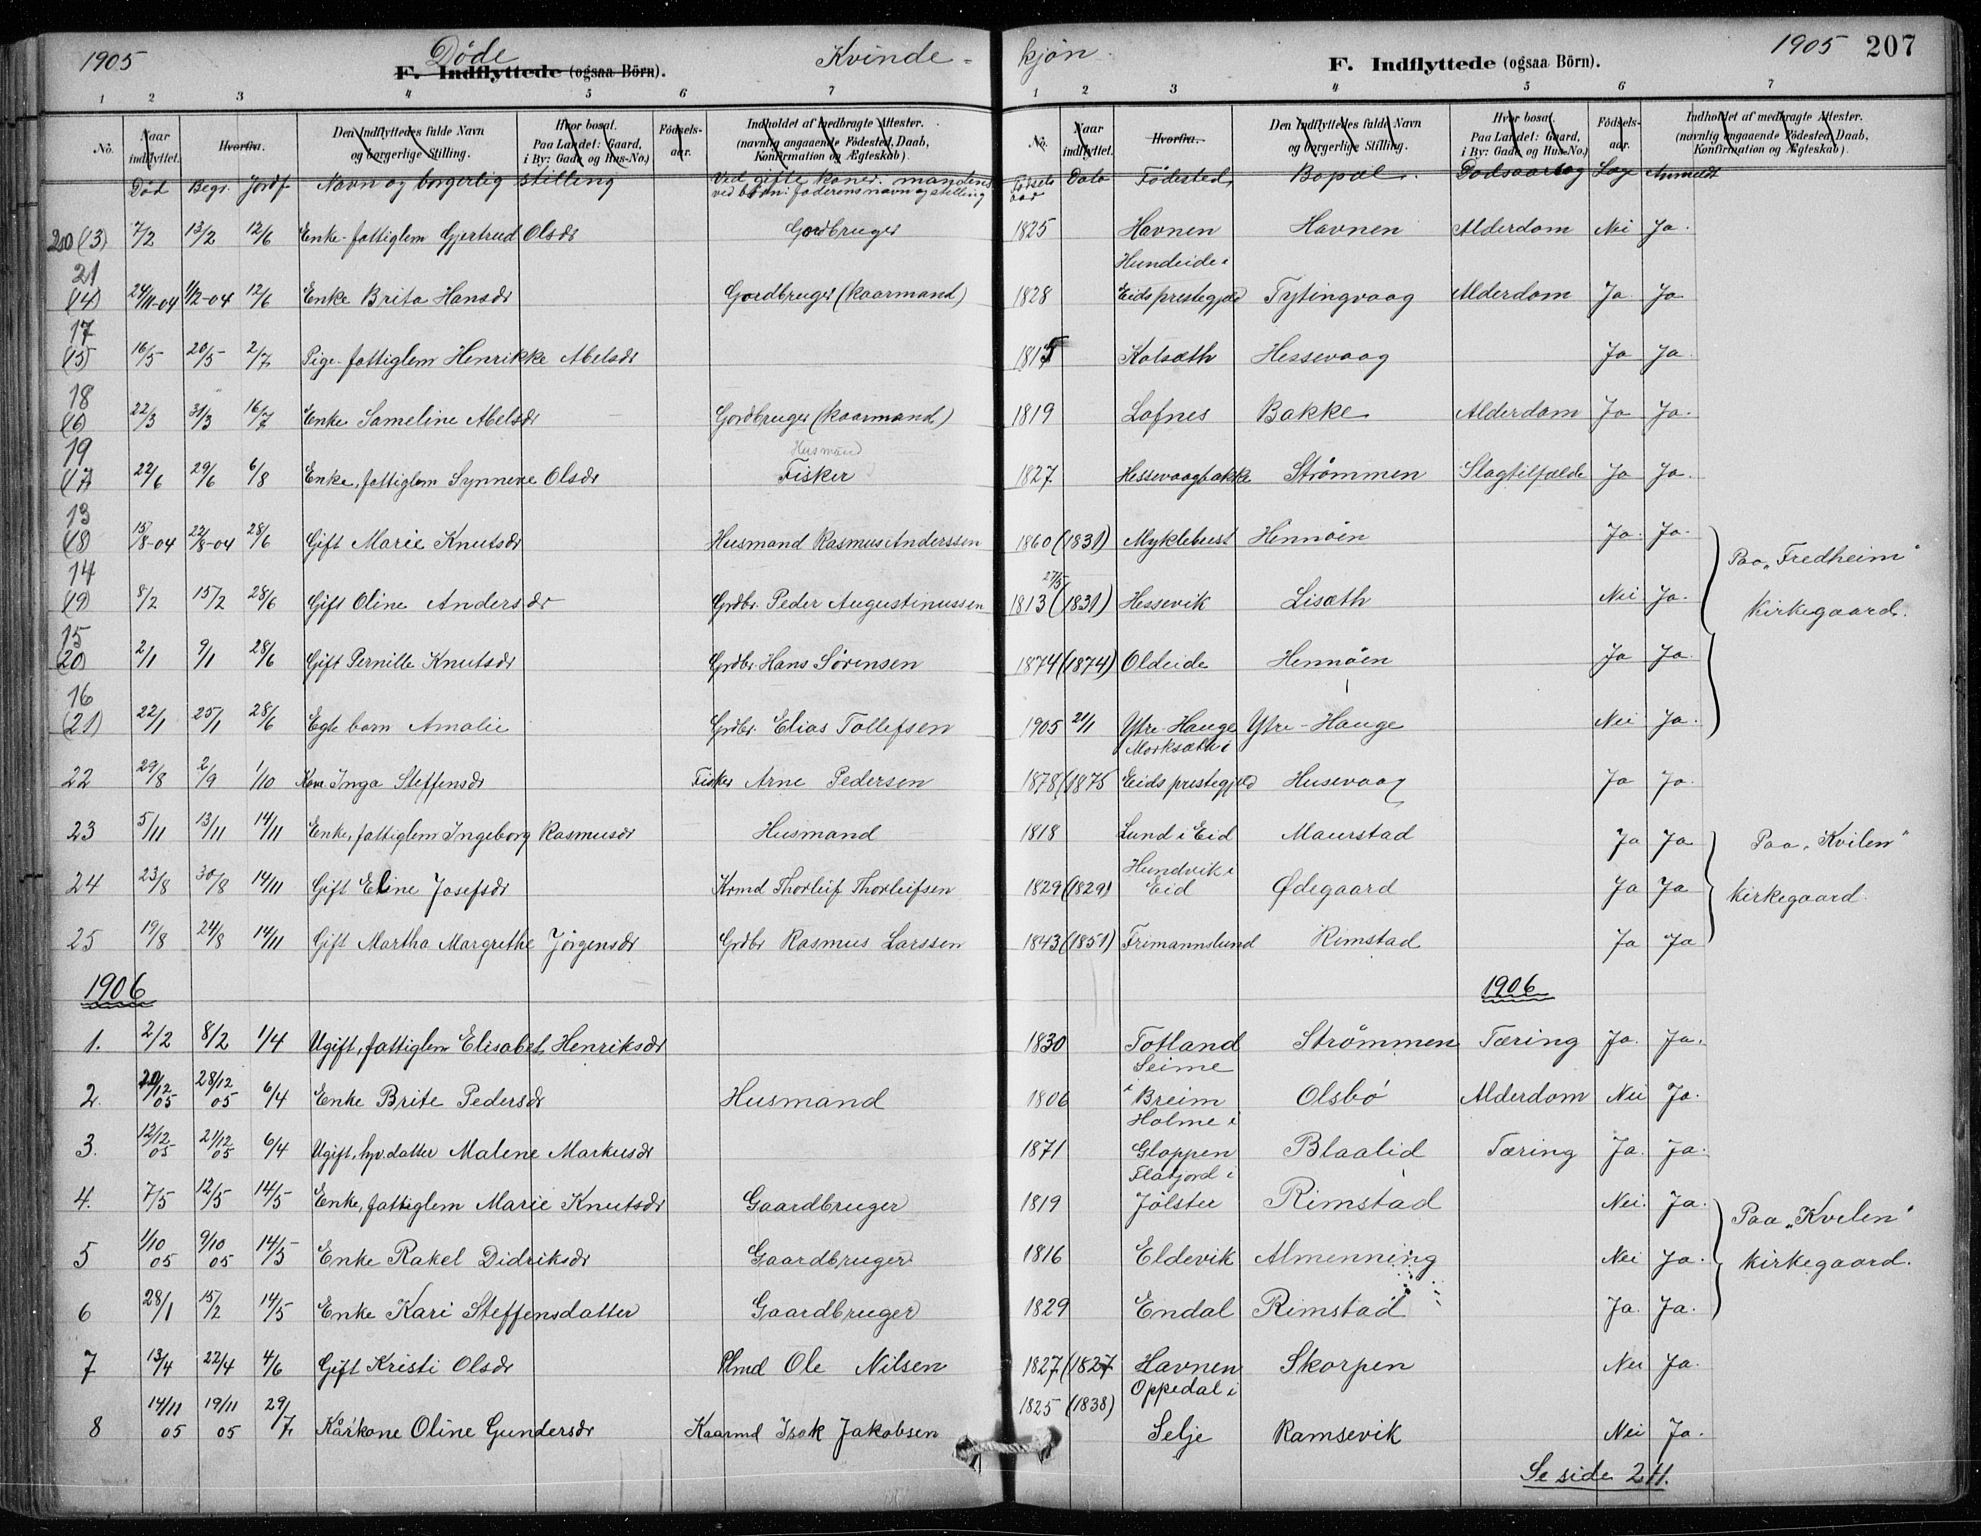 1905 Døde Kvinde- kjøn. 1905 207
F. Indflyttede (ogsaa Börn). F. Indflyttede (ogsaa Börn).
1 2 3 4 5 6 7 1 2 3 4 5 6 7
No. Naar indflyttet. Hvorfra. Den Indflyttedes fulde Navn og borgerlige Stilling. Hvor bosat. Paa Landet: Gaard, i By: Gade og Hus-No.) Fødsels-aar. Indholdet af medbragte Attester. (navnlig angaaende Födested, Daab, Konfirmation og Ægteskab).
No. Naar indflyttet. Hvorfra. Den Indflyttedes fulde Navn og borgerlige Stilling. Hvor bosat. Paa Landet: Gaard, i By: Gade og Hus-No.) Födsels-aar. Indholdet af medbragte Attester. (navnlig angaaende Födested, Daab, Konfirmation og Ægteskab).
Død Begr. Jordf. Navn og borgerlig stilling Ved gifte koner: mandens ved børn: faderens navn og stilling Fødsels aar Dato Fødested Bopæl. Dødsaarsag Læge Anmeldt
20 (13) 7/2 13/2 12/6 Enke- fattiglem Gjertrud Olsdr Gordbruger 1825 Havnen Havnen Alderdom Nei Ja.
21 (14) 24/11-04 1/2-04 12/6 Enke Brita Hansdr Gordbruger (kaarmand) 1828 Hundeide i Eids prestegjeld Tytingvaag Alderdom Ja Ja
17 (15) 16/5 20/5 2/7 Pige- fattiglem Henrikke Abelsdr Kolsæth Hessevaag Ja Ja.
18 (16) 22/3 31/3 16/7 Enke Sameline Abelsdr Gordbruger (kaarmand) 1819 Lofnes Bakke Alderdom Ja Ja.
19 (17) 22/6 29/6 6/8 Enke, fattiglem Synneve Olsdr Husmand Fisker 1827 Hessevaagbakke Strømmen Slagtilfælde Ja Ja.
13 (18) 15/8-04 22/8-04 28/6 Gift Marie Knutsdr Husmand Rasmus Anderssen 1860 (1831) Myklebust Hennøen Ja. Ja.
14 (19) 8/2 15/2 28/6 Gift Oline Andersdr Grdbr. Peder Augustinussen 27/5 1813 (1831) Hessevik Lisæth Nei Ja. Paa "Fredheim" Kirkegaard.
15 (20) 2/1 9/1 28/6 Gift Pernille Knutsdr Grdbr. Hans Sørensen 1874 (1874) Oldeide Hennøen Ja Ja.
16 (21) 22/1 25/1 28/6 Egte barn Amalie Grdbr. Elias Tollefsen 1905 21/1 Ytre Hauge Ytre-Hauge Nei Ja.
22 29/8 2/9 1/10 Kone Inga Steffensdr Fisker Arne Pedersen 1878 (1875 Morksæth i Eids prestegjeld Husevaag Ja Ja.
23 5/11 13/11 14/11 Enke, fattiglem Ingeborg Rasmusdr Husmand 1818 Lund i Eid Maurstad Ja Ja Paa "Kvilen"
24 23/8 30/8 14/11 Gift Eline Josefsdr Krmd Thorleif Thorleifsen 1829 (1829) Hundvik i Eid Ødegaard Ja Ja kirkegaard.
25 19/8 24/8 14/11 Gift Martha Margrethe Jørgensdr Grdbr Rasmus Larssen 1843 (1851) Frimannslund Rimstad Ja Ja
1906 1906
1. 2/2 8/2 1/4 Ugift, fattiglem Elisabet Henriksdr 1830 Totland Strømmen Tæring Ja. Ja.
2. 20/12 05 28/12 05 6/4 Enke Brite Pedersdr Husmand 1806 Seime i Breim Olsbø Alderdom Nei Ja.
3. 12/12 05 21/12 05 6/4 Ugift, hv. datter Malene Markusdr 1871 Holme i Gloppen Blaalid Tæring Ja. Ja.
4. 7/5 12/5 14/5 Enke, fattiglem Marie Knutsdr Gaardbruger 1819 Flatjord i Jølster Rimstad Nei. Ja. Paa "Kvilen"
5 1/10 05 9/10 05 14/5 Enke Rakel Didriksdr Gaardbruger 1816 Eldevik Almenning Nei Ja. kirkegaard.
6 28/1 15/2 14/5 Enke Kari Steffensdatter Gaardbruger 1829 Endal Rimstad Ja. Ja.
7 13/4 22/4 4/6 Gift Kristi Olsdr Plmd Ole Nilsen 1827 (1827 Havnen Skorpen Nei Ja.
8 14/11 05 19/11 05 29/7 Kårkone Oline Gundersdr Kaarmd Isak Jakobsen 1825 (1838) Oppedal i Selje Ramsevik Nei Ja.
Se side 211.